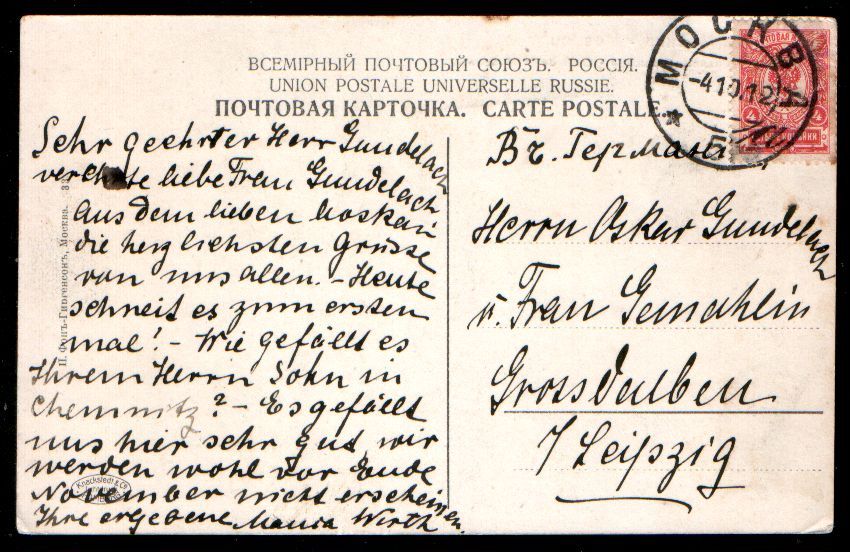 ВСЕМІРНЫЙ ПОЧТОВЫЙ СОЮЗЪ. РОССІЯ.
UNION POSTALE UNIVERSELLE RUSSIE.
ПОЧТОВАЯ КАРТОЧКА. CARTE POSTALE.
МОСКВА
-4 10 12
4
Sehr geehrter Herr Gundelach
liebe Frau Gundelach
Aus dem lieben Moskau
die herzlichsten Grüsse
von uns allen. - Heute
schneit es zum ersten
mal! - Wie gefällt es
Ihrem Herrn Sohn in
Chemnitz? - Es gefällt
uns hier sehr gut, wir
werden wohl vor Ende
November nicht erscheinen.
Ihre ergebene Wirth
Въ. Германію
Herrn Oskar Gundelach
u. Frau Gemahlin
Grossdalben
/ Leipzig
П. Фонъ-Гиргенсонъ, Москва.
Knackstedt & Co